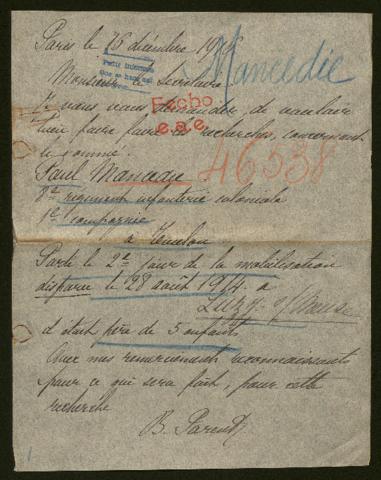 Paris le 16 décembre 1914
Petite
Mancedie
Monsieur le Secrétaire
Je vous demander de vouloir
bien faire faire des recherches, concernant
le nommé.
Fecho
e.a.e.
46538
Paul Mancedie
8e régiment infanterie coloniale
1e compagnie
à Toulon
Parti le 2e jour de la mobilisation
disparu le 28 août 1914. a
Luzy s/Meuse
il était père de 5 enfants
Avec mes remerciements reconnaissants
pour ce qui sera fait, pour cette
recherche
B. Parent